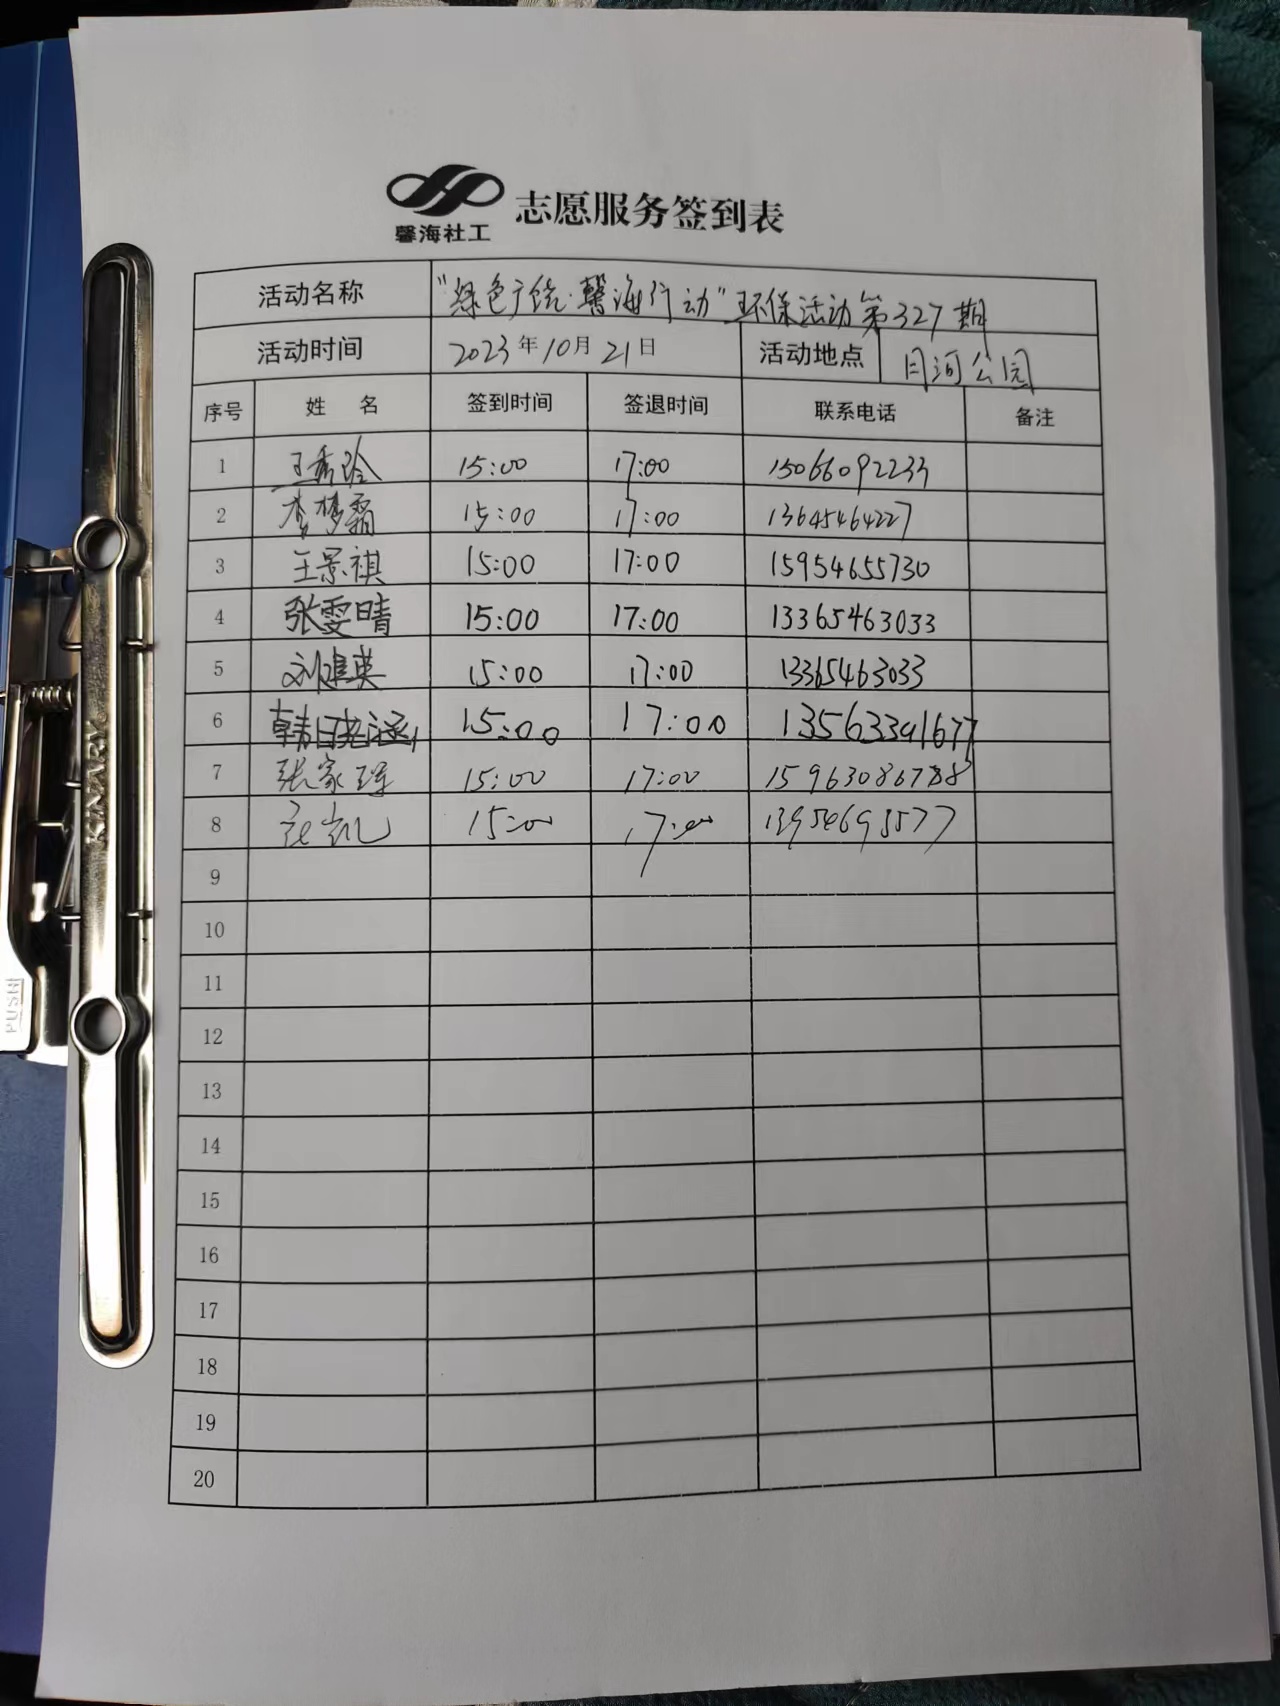 馨海社工 志愿服务签到表
活动名称 "绿色广饶·馨海行动"环保活动第327期
活动时间 2023年10月21日 活动地点 月河公园
序号 姓名 签到时间 签退时间 联系电话 备注
1 王秀玲 15:00 17:00 15066092233
2 李梦霜 15:00 17:00 13645464227
3 王景祺 15:00 17:00 15954655730
4 张雯晴 15:00 17:00 13365463033
5 刘建英 15:00 17:00 13365463033
6 15:00 17:00 13563391677
7 张家瑶 15:00 17:00 15963086788
8 15:00 17:00 13954695577
9
10
11
12
13
14
15
16
17
18
19
20
KINARY
PUSH